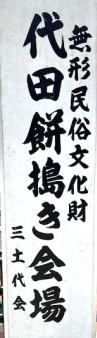 無形民俗文化財
代田餅搗き会場
三土代会